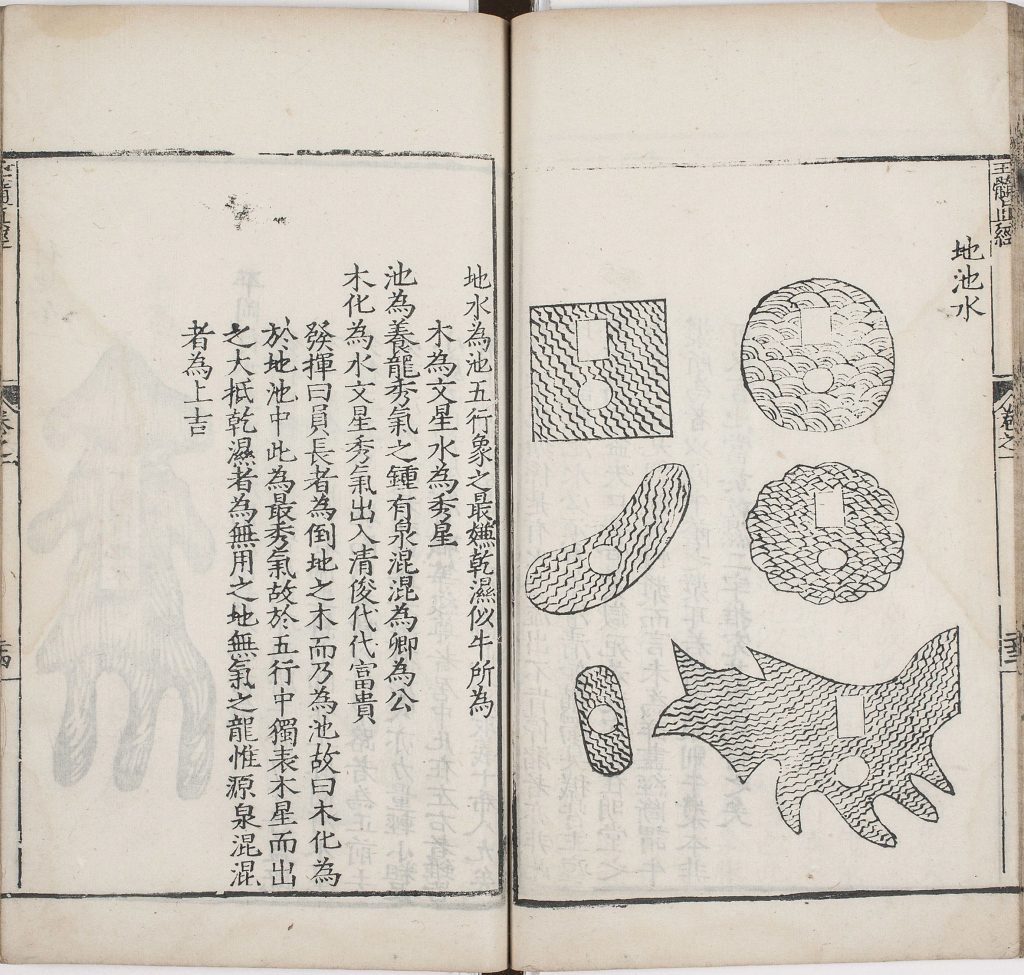 玉髓真經
卷之
地池水
地水為池五行象之最嫌乾濕似牛所為
木為文星水為秀星
池為養龍秀氣之鍾有泉混混為卿為公
木化為水文星秀氣出入清俊代代富貴
發揮曰員長者為倒地之木而乃為池故曰木化為
於地池中此為最秀氣故於五行中獨表木星而出
之大抵乾濕者為無用之地無氣之龍惟源泉混混
者為上吉